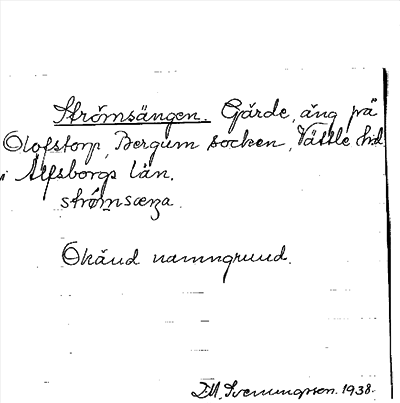 Strömsängen. Gärde, äng på
Olofstorp, Bergum socken, Vättle hd
i Älfsborgs län.
strömsæŋa.
Okänd namngrund.
D.M. Svenungsson. 1938.